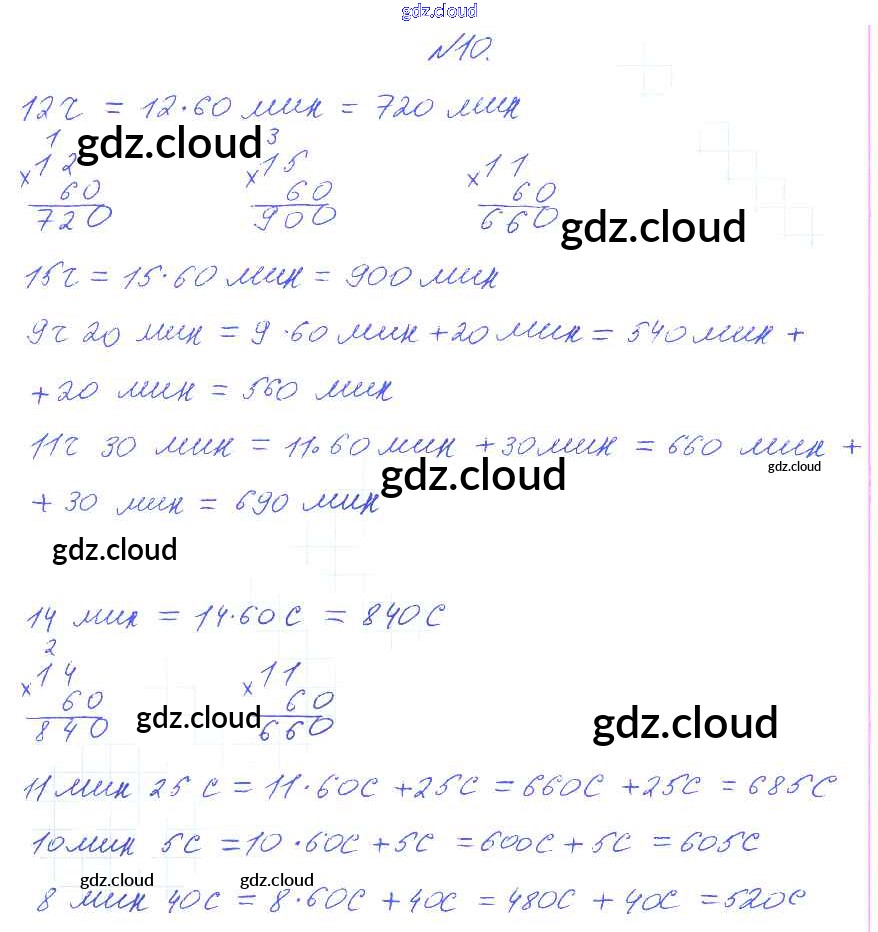 gdz.cloud
№10.
12ч = 12·60 мин = 720 мин
gdz.cloud
1 3
×12 ×15 ×11
60 60 60
720 900 660
gdz.cloud
15ч = 15·60 мин = 900 мин
9ч 20 мин = 9·60 мин + 20 мин = 540 мин +
+ 20 мин = 560 мин
11ч 30 мин = 11·60 мин + 30 мин = 660 мин +
gdz.cloud
gdz.cloud
+ 30 мин = 690 мин
gdz.cloud
14 мин = 14·60 с = 840 с
2
×14 ×11
60 60
840 660
gdz.cloud gdz.cloud
11 мин 25 с = 11·60с + 25с = 660с + 25с = 685с
10 мин 5с = 10·60с + 5с = 600с + 5с = 605с
gdz.cloud gdz.cloud
8 мин 40с = 8·60с + 40с = 480с + 40с = 520с